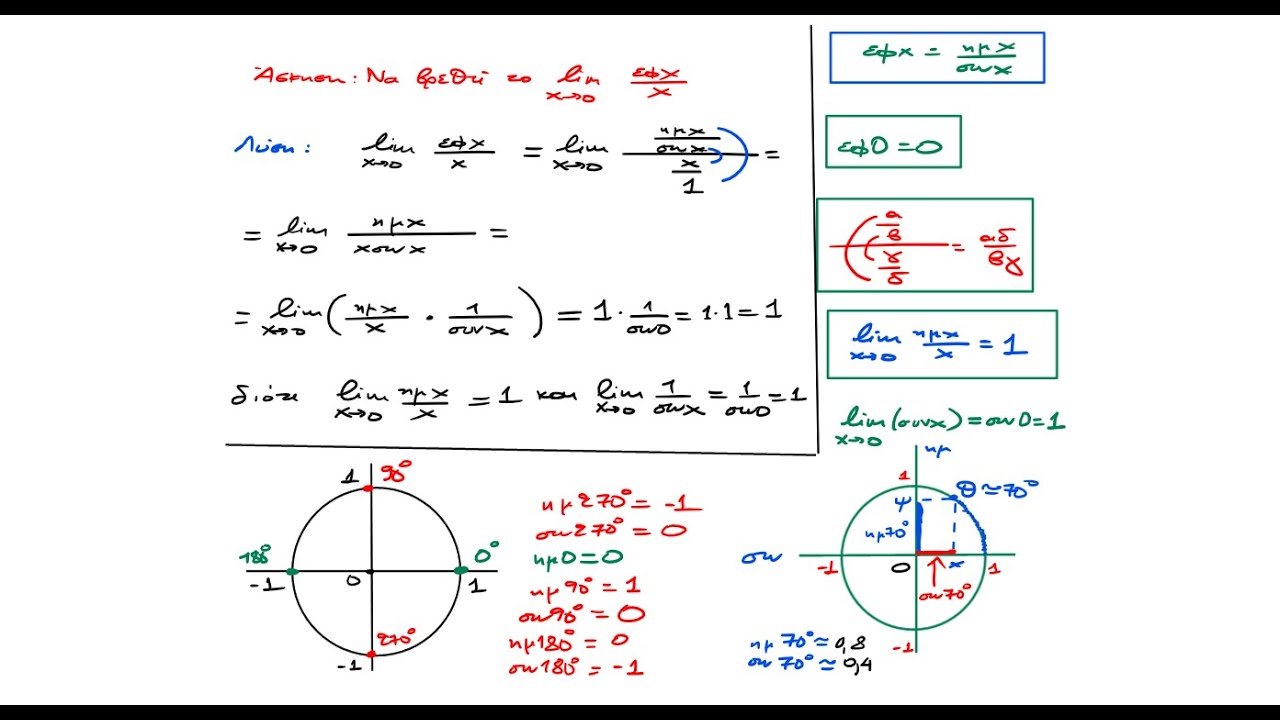 Άσκηση: Να βρεθεί το lim x→0 εφx/x
Λύση: lim x→0 εφx/x = lim x→0 (ημx/συνx)/(x/1) =
= lim x→0 ημx/xσυνx =
= lim x→0 (ημx/x · 1/συνx) = 1 · 1/συν0 = 1·1 = 1
διότι lim x→0 ημx/x = 1 και lim x→0 1/συνx = 1/συν0 = 1
εφx = ημx/συνx
εφ0 = 0
(α/β)/(γ/δ) = αδ/βγ
lim x→0 ημx/x = 1
lim x→0 (συνx) = συν0 = 1
1 90°
180° 0°
-1 0 1
270°
-1
ημ270° = -1
συν270° = 0
ημ0 = 0
ημ90° = 1
συν90° = 0
ημ180° = 0
συν180° = -1
ημ
1
ψ θ≃70°
ημ70°
συν
-1 0 x 1
συν70°
-1
ημ70° ≃ 0,8
συν70° ≃ 0,4